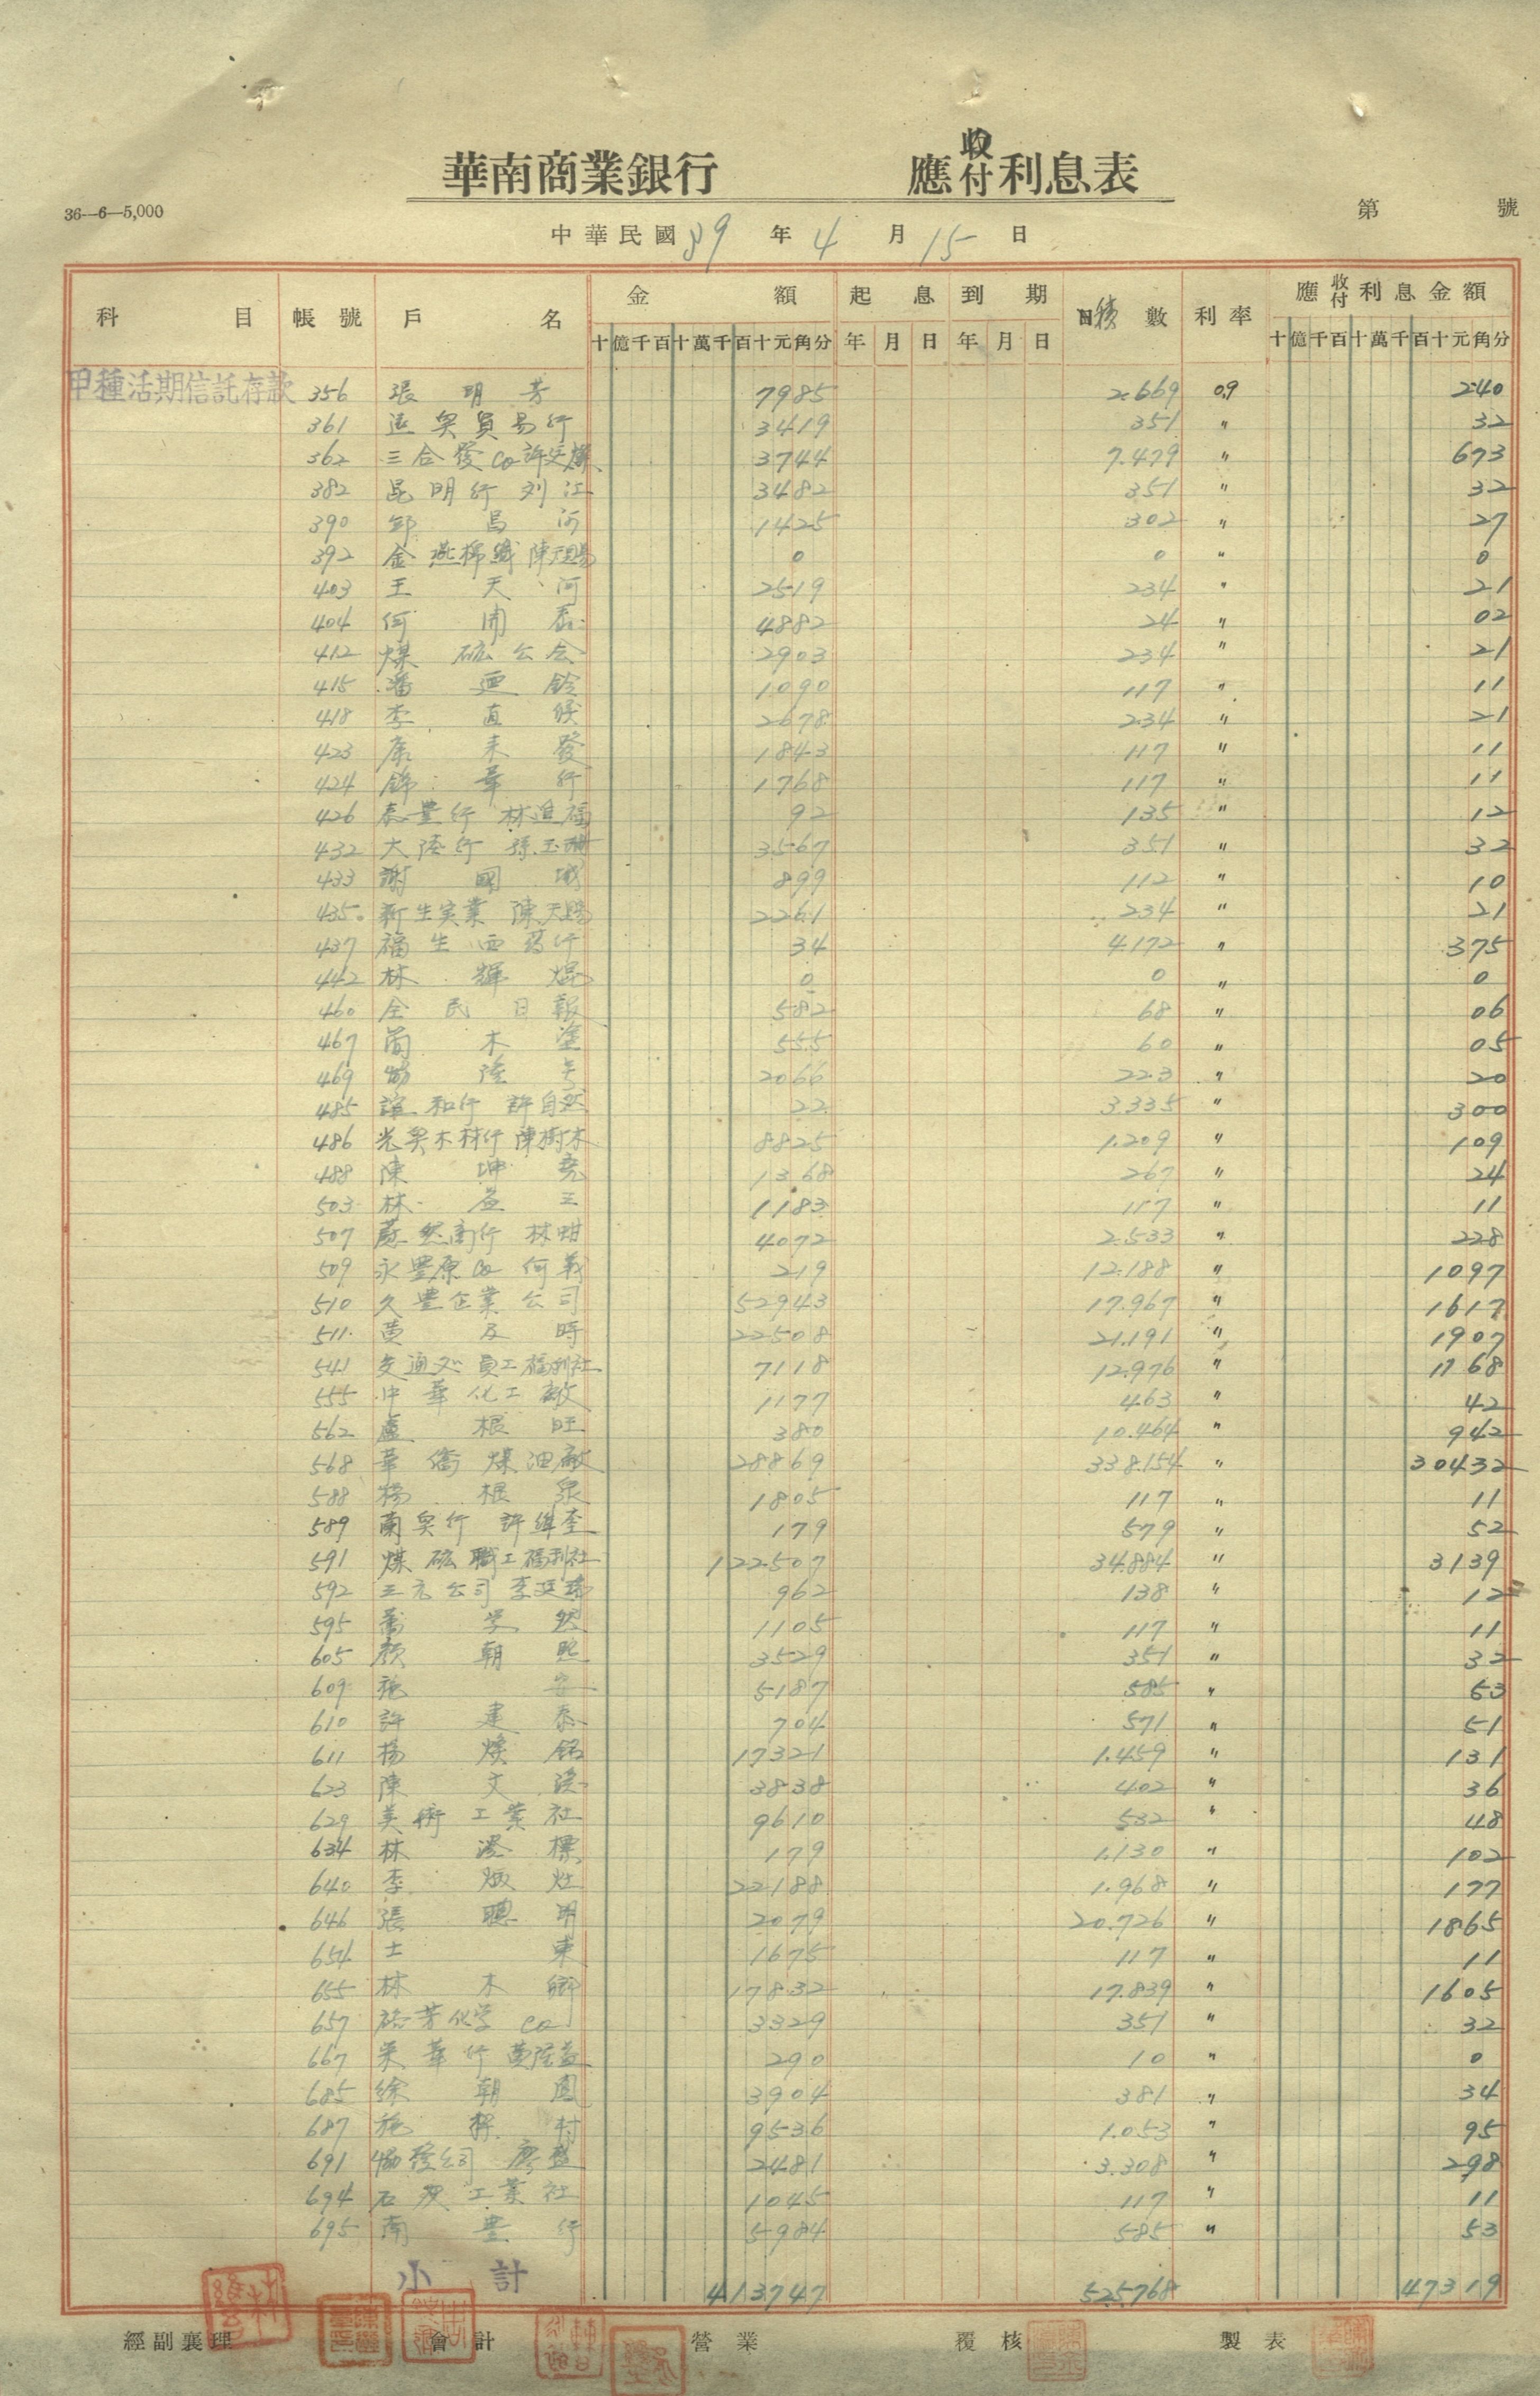 華南商業銀行 應收付利息表
36—6—5,000
第 號
中華民國 39 年 4 月 15 日
科目 帳號 戶名 金額 起息 到期 日積數 利率 應收付利息金額
十億千百十萬千百十元角分 年月日 年月日 十億千百十萬千百十元角分
甲種活期信託存款 356 張明芳 7985 2.669 0.9 240
361 遠興貿易行 3419 351 〃 32
362 三合發Co許 3744 7.479 〃 673
382 昆明行 刘江 3482 351 〃 32
390 昌河 1425 302 〃 27
392 金燕棉織 陳天賜 0 0 〃 0
403 王天河 2519 234 〃 21
404 何開 4882 24 〃 02
412 煤砿公会 2903 234 〃 21
415 潘迺 1090 117 〃 11
418 李直 2678 234 〃 21
423 康來發 1843 117 〃 11
424 錦華行 1768 117 〃 11
426 泰豊行 林進福 92 135 〃 12
432 大陸行 孫玉 3567 351 〃 32
433 謝國城 899 112 〃 10
435 新生実業 陳天賜 2261 234 〃 21
437 福生西葯行 34 4.172 〃 375
442 林輝焜 0 0 〃 0
460 全民日報 582 68 〃 06
467 簡木塗 555 60 〃 05
469 協隆号 2066 223 〃 20
485 誼和行 許自然 22 3.335 〃 300
486 光興木材行 陳樹木 8825 1.209 〃 109
488 陳坤 1368 267 〃 24
503 林益三 1183 117 〃 11
507 蔚然商行 林 4072 2.533 〃 228
509 永豊原Co 何義 219 12.188 〃 1097
510 久豊企業公司 52943 17.967 〃 1617
511 黄及時 22508 21.191 〃 1907
541 交通处員工福利社 7118 12.976 〃 1168
555 中華化工廠 1177 463 〃 42
562 盧根旺 380 10.464 〃 942
568 華僑煤油廠 28869 338.154 〃 30432
588 楊根泉 1805 117 〃 11
589 蘭興行 許 179 579 〃 52
591 煤砿職工福利社 122507 34.884 〃 3139
592 公司 李 962 138 〃 12
595 1105 117 〃 11
605 顏朝熙 3529 351 〃 32
609 施安 5187 585 〃 53
610 許建泰 704 571 〃 51
611 楊煥銘 17321 1.459 〃 131
623 陳文 3838 402 〃 36
629 美術工業社 9610 532 〃 48
634 林 標 179 1.130 〃 102
640 李 灶 22188 1.968 〃 177
646 張聰明 2079 20.726 〃 1865
654 士東 1675 117 〃 11
655 林木 17832 17.839 〃 1605
657 芳化学Co 3329 351 〃 32
667 華行 黄 290 10 〃 0
685 徐朝鳳 3904 381 〃 34
687 施 村 9536 1.053 〃 95
691 協發公司 廖 2481 3.308 〃 298
694 石炭工業社 1045 117 〃 11
695 南豊行 5984 585 〃 53
小計 413747 525768 47319
經副襄理 會計 營業 覆核 製表